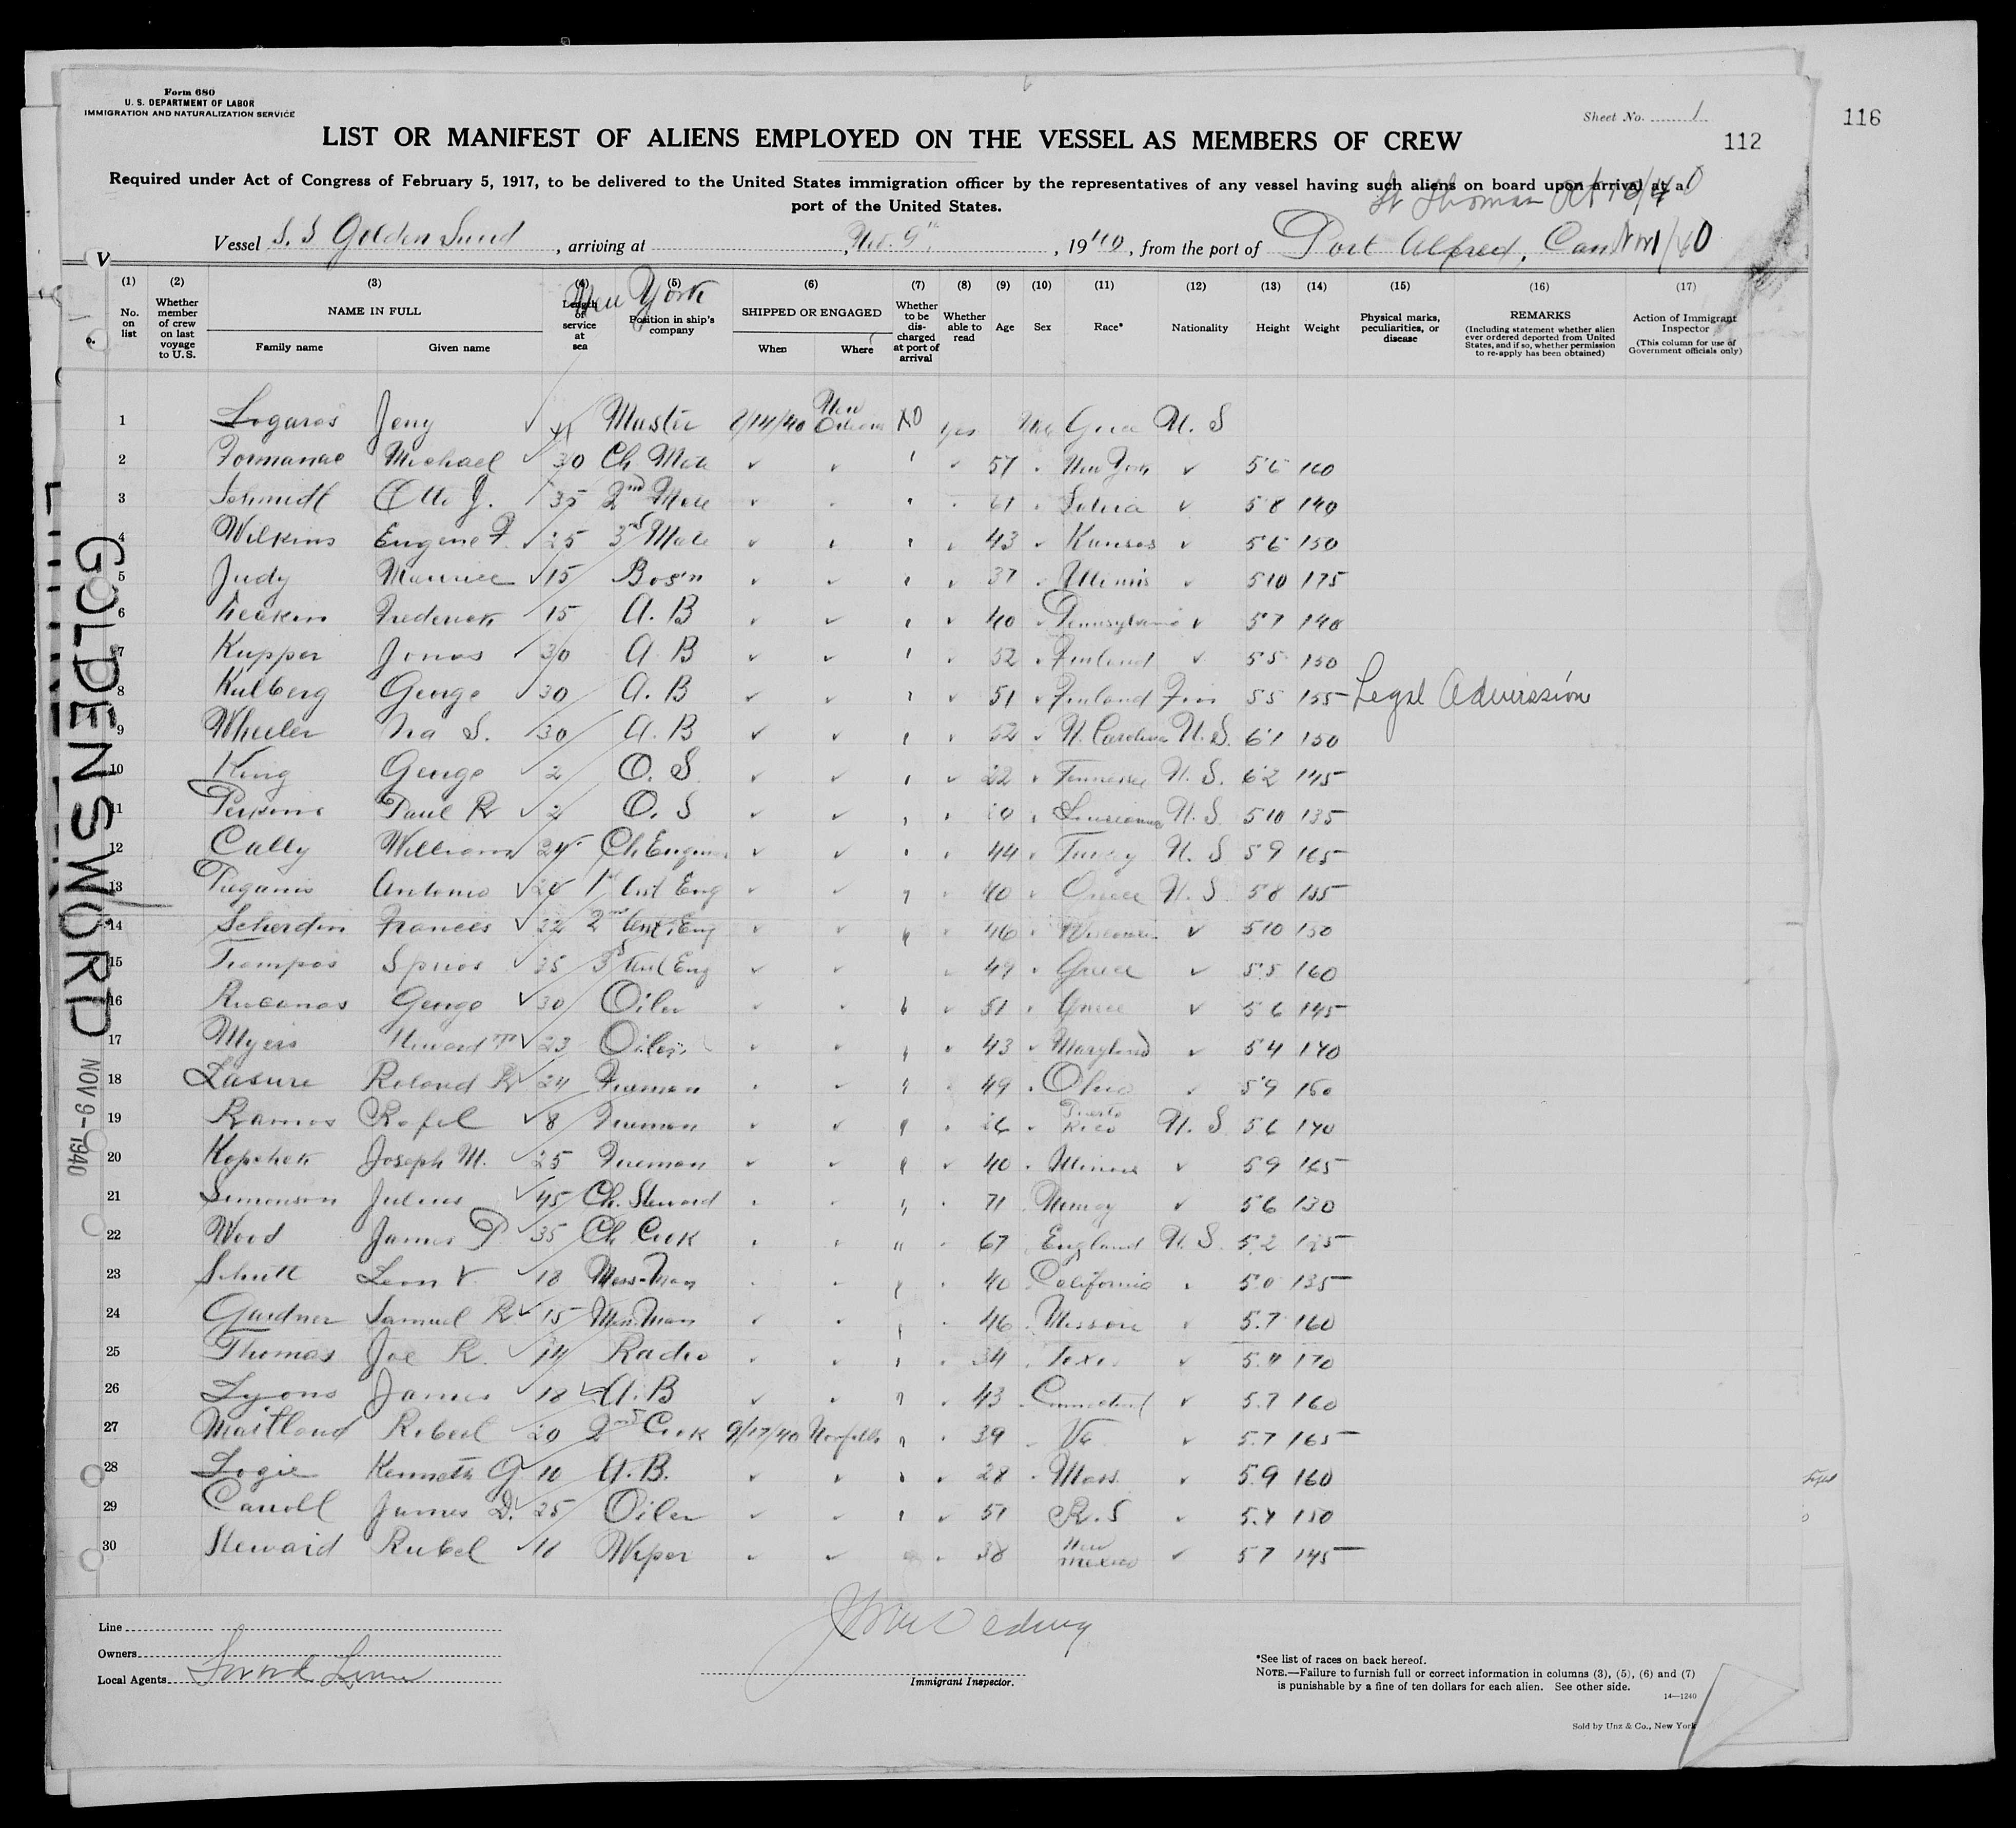 Form 680
U. S. DEPARTMENT OF LABOR
IMMIGRATION AND NATURALIZATION SERVICE
Sheet No. 1
116
112
LIST OR MANIFEST OF ALIENS EMPLOYED ON THE VESSEL AS MEMBERS OF CREW
Required under Act of Congress of February 5, 1917, to be delivered to the United States immigration officer by the representatives of any vessel having such aliens on board upon arrival at a
port of the United States.
St Thomas Oct
Vessel S.S Golden Sword, arriving at Nov. 9th, 1940, from the port of Port Alfred, Can Nov 1/40
New York
(1) No. on list
(2) Whether member of crew on last voyage to U.S.
(3) NAME IN FULL Family name Given name
(4) Length of service at sea
(5) Position in ship's company
(6) SHIPPED OR ENGAGED When Where
(7) Whether to be discharged at port of arrival
(8) Whether able to read
(9) Age
(10) Sex
(11) Race*
(12) Nationality
(13) Height
(14) Weight
(15) Physical marks, peculiarities, or disease
(16) REMARKS (Including statement whether alien ever ordered deported from United States, and if so, whether permission to re-apply has been obtained)
(17) Action of Immigrant Inspector (This column for use of Government officials only)
1 Logaros Jeny Master /14/40 New Orleans No Yes U. S
2 Michael 30 Ch Mate 57 New York 56 160
3 Schmidt Otto J. 35 2nd Mate 61 58 140
4 Wilkins Eugene F. 25 3rd Mate 43 Kansas 56 150
5 Judy Maurice 15 Bos'n 37 Illinois 510 175
6 Frederick 15 A. B 40 Pennsylvania 57 140
7 Kupper Jonas 30 A B 52 Finland 55 150
8 Kulberg George 30 A. B 51 Finland Fin 55 155 Legal Admission
9 Wheeler Ira S. 30 A. B 52 N. Carolina U. S. 61 150
10 King George 2 O. S 22 Tennessee U. S. 62 145
11 Perkins Paul R 2 O. S Louisiana U. S. 510 135
12 Cally William 24 Ch Engineer 44 Turkey U. S 59 165
13 Antonio 1st Ast Eng 40 Greece U. S. 58
14 Scherdin Francis 22 2nd Ast Eng 46 Wisconsin 510 150
15 Spiros 25 3d Ast Eng 49 Greece 55 160
16 George 30 Oiler 51 Greece 56 145
17 Myers Howard 23 Oiler 43 Maryland 54 140
18 Lasure Roland R 24 Fireman 49 Ohio 59 150
19 Ramos Rafel 8 Fireman 26 Puerto Rico U. S. 56 140
20 Kopchek Joseph M. 25 Fireman 40 Illinois 59 165
21 Simonson Julius 45 Ch. Steward 71 Norway 56 130
22 Wood James P 35 Ch Cook 67 England U. S. 5.2
23 Schutt Leon V. 18 Mess-Man 40 California 5.0 135
24 Gardner Samuel R 15 Mess Man 46 Missouri 5.7 160
25 Thomas Joe R. 14 Radio 34 Texas 170
26 Lyons James 18 A. B 43 Connecticut 5.7 160
27 Maitland Robert 20 2nd Cook 9/17/40 Norfolk 39 Va 5.7 165
28 Logie Kenneth G 10 A. B. 28 Mass. 5.9 160
29 Carroll James D. 25 Oiler 51 150
30 Steward Rubel Wiper 38 New Mexico 57 145
GOLDEN SWORD NOV 9-1940
Line
Owners
Local Agents
Immigrant Inspector.
*See list of races on back hereof.
NOTE.—Failure to furnish full or correct information in columns (3), (5), (6) and (7)
is punishable by a fine of ten dollars for each alien. See other side.
14—1240
Sold by Unz & Co., New York